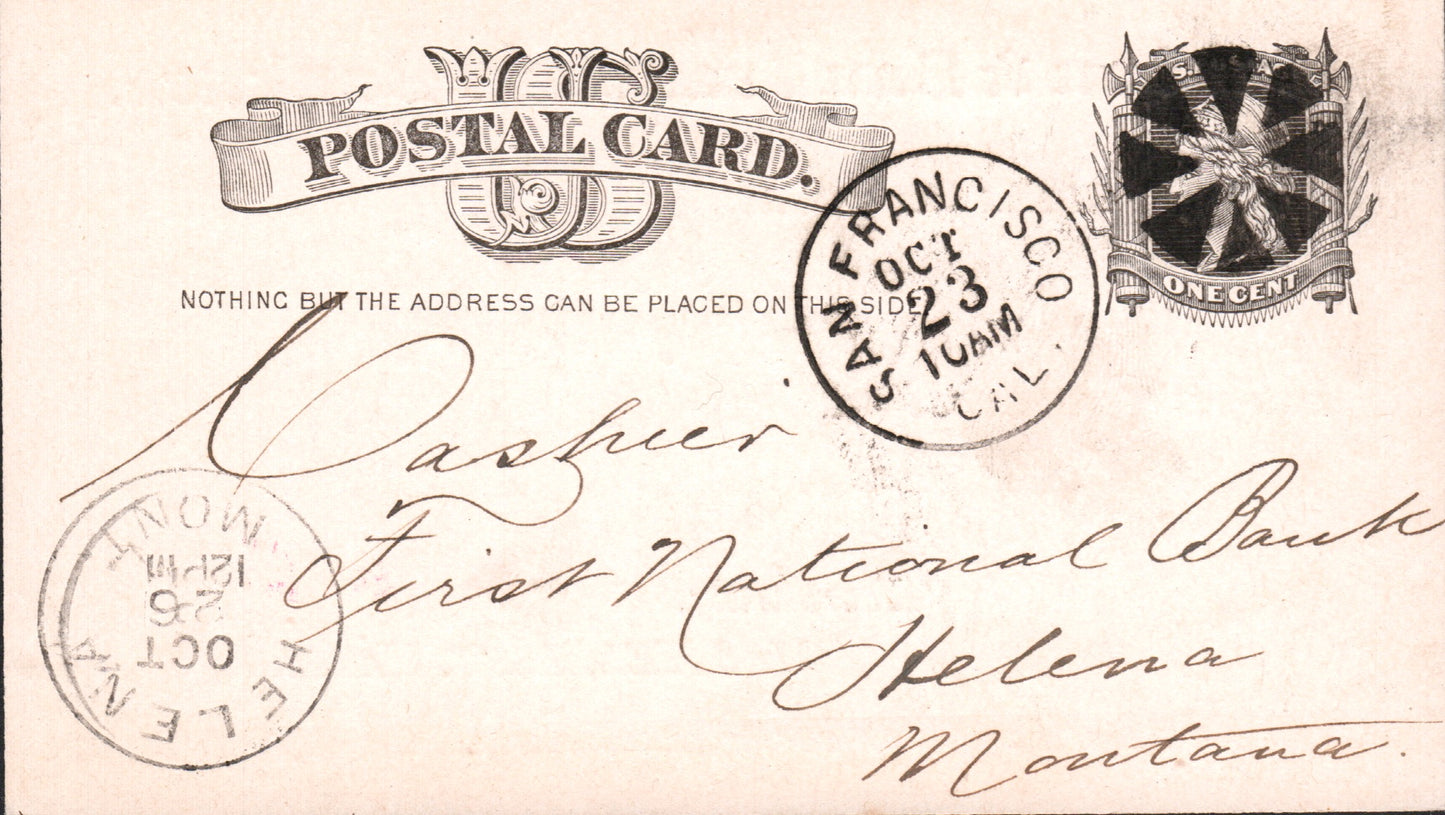 US
POSTAL CARD.
U.S. POSTAGE
ONE CENT
NOTHING BUT THE ADDRESS CAN BE PLACED ON THIS SIDE
SAN FRANCISCO
OCT
23
10AM
CAL.
Cashier
First National Bank
Helena
Montana.
HELENA
OCT
26
12PM
MONT